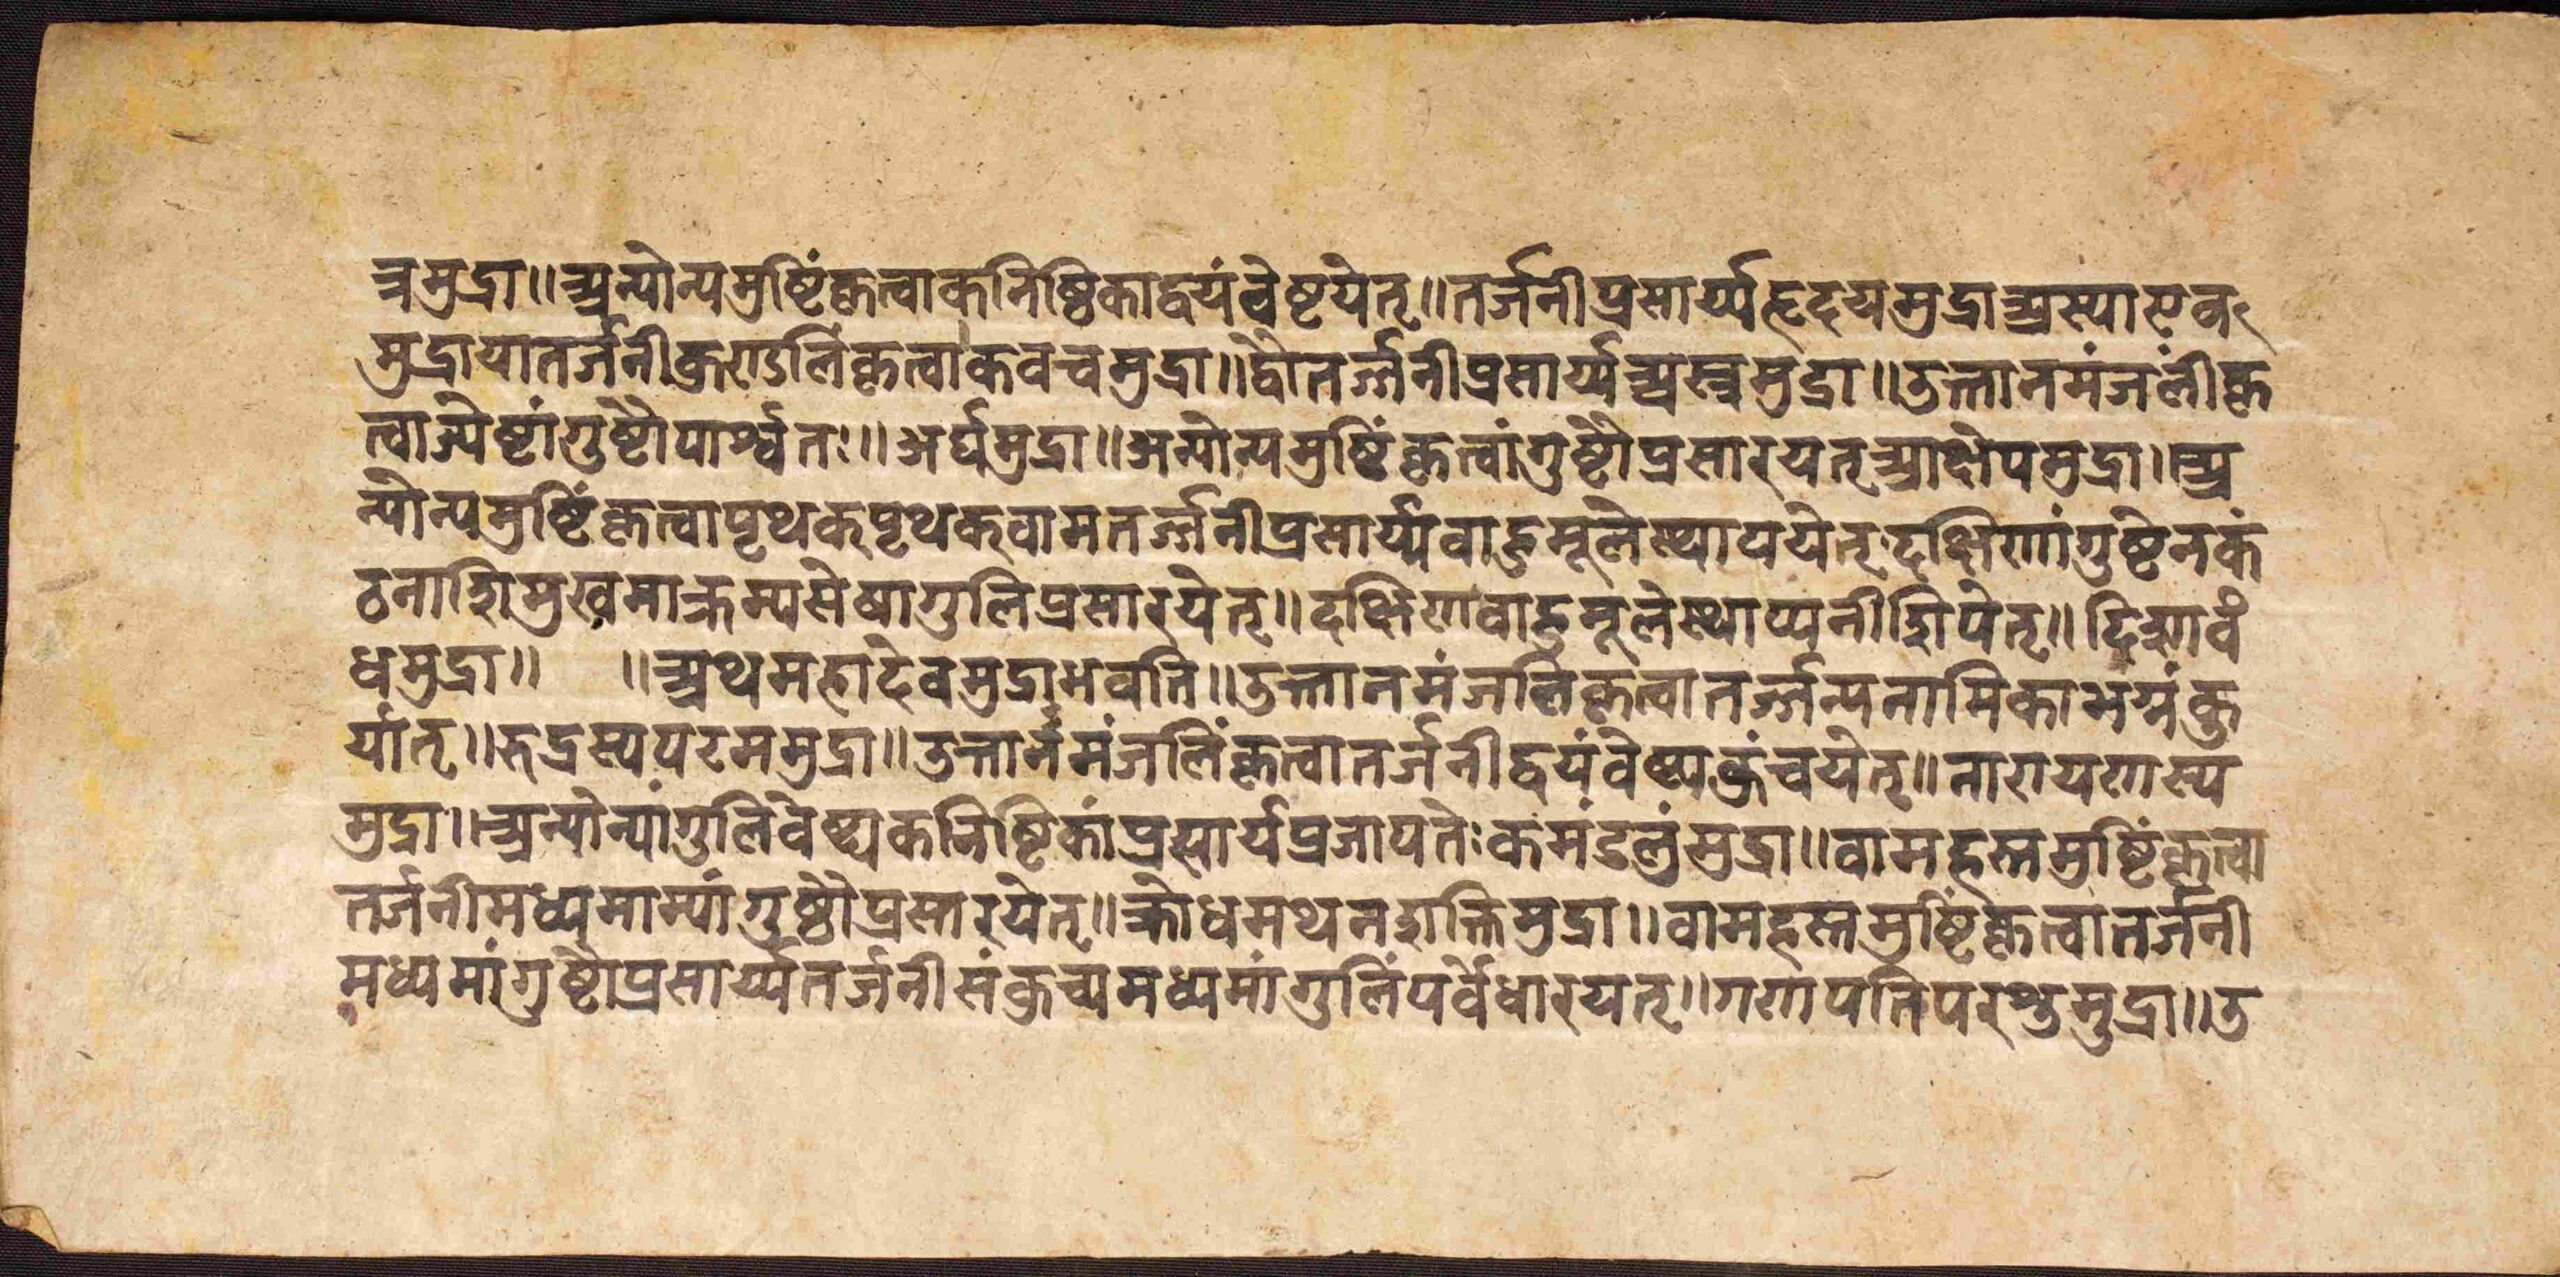 त्रमुद्रा॥अन्योन्यमुष्टिंकृत्वाकनिष्ठिकाद्वयंवेष्टयेत्॥तर्जनीप्रसार्य्यहृदयमुद्राअस्याएव
मुद्रायातर्जनीकुण्डलिंकृत्वाकवचमुद्रा॥द्वौतर्ज्जनीप्रसार्य्यअस्त्रमुद्रा॥उत्तानमंजलींकृ
त्वाज्येष्टांगुष्टौपार्श्वतः॥अर्घमुद्रा॥अन्योन्यमुष्टिंकृत्वांगुष्टौप्रसारयतृआक्षेपमुद्रा॥अ
न्योन्यमुष्टिंकृत्वापृथक्पृथक्वामतर्ज्जनीप्रसार्य्यवाहुमूलेस्थापयेत्दक्षिणांगुष्टेनकं
ठनाभिमुखमाक्रम्यसेषागुलिप्रसारयेत्॥दक्षिणवाहुमूलेस्थाप्यनीक्षिपेत्॥दिशावं
धमुद्रा॥ ॥अथमहादेवमुद्राभवति॥उत्तानमंजलिकृत्वातर्ज्जन्यनामिकाभग्नंकु
र्यात्॥रुद्रस्यपरममुद्रा॥उत्तानंमंजलिंकृत्वातर्जनीद्वयंवेष्ट्यकुंचयेत्॥नारायणस्य
मुद्रा॥अन्योन्यांगुलिवेष्ट्यकनिष्टिकांप्रसार्यप्रजापतेःकमंडलुंमुद्रा॥वामहस्तमुष्टिंकृत्वा
तर्जनीमध्यमाम्यांगुष्ठौप्रसारयेत्॥क्रोधमथनशक्तिमुद्रा॥वामहस्तमुष्टिंकृत्वातर्जनी
मध्यमांगुष्टौप्रसार्य्यतर्जनीसंकुच्यमध्यमांगुलिंपर्वेधारयत्॥गणपतिपरशुमुद्रा॥उ